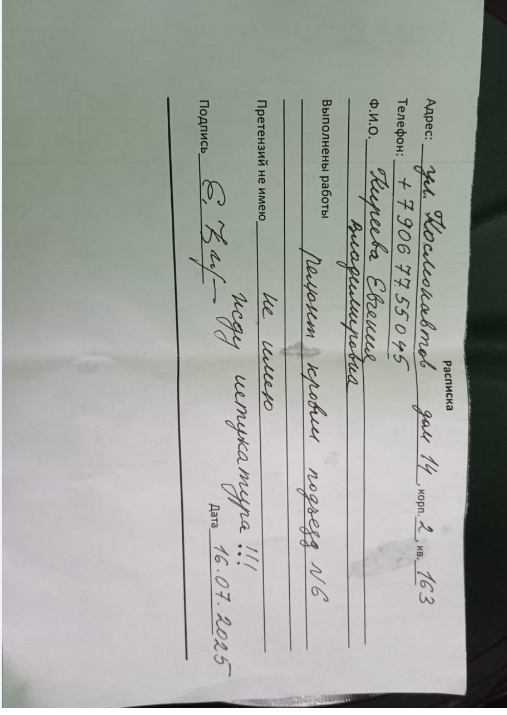 Расписка
Адрес: ул. Космонавтов дом 14, корп. 2, кв. 163
Телефон: +79067755045
Ф.И.О. Киреева Евгения
Владимировна
Выполнены работы
ремонт кровли подъезд N6
Претензий не имею не имею
жду штукатура !!!
Подпись Дата 16.07.2025